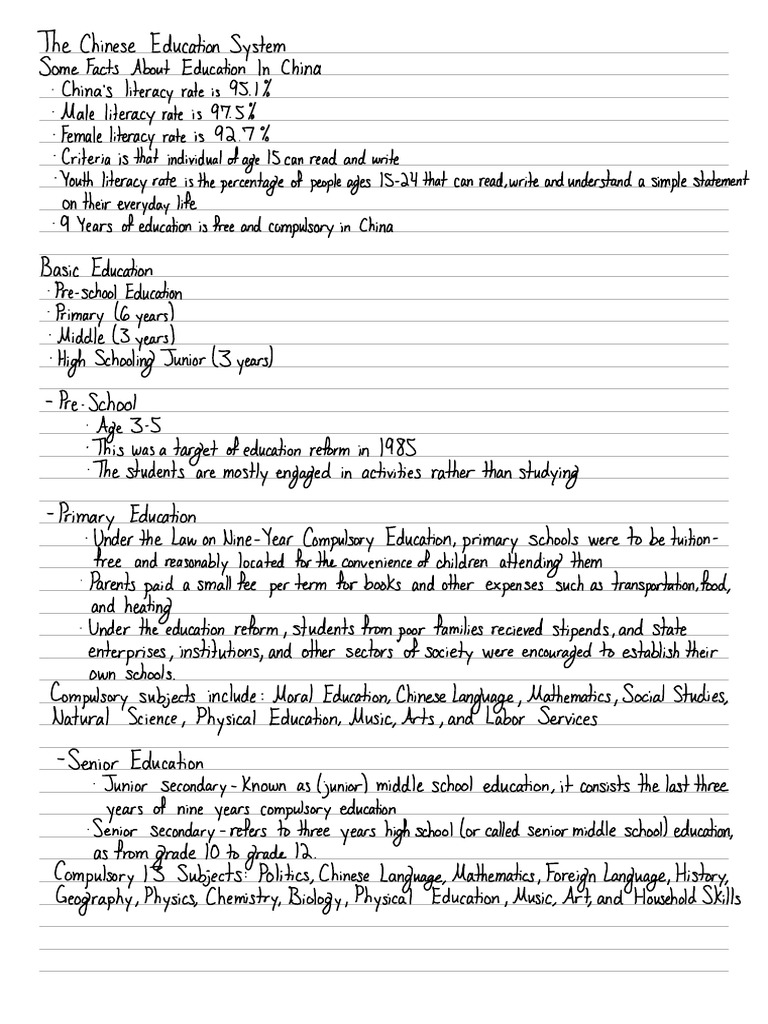 The Chinese Education System
Some Facts About Education In China
· China's literacy rate is 95.1%
· Male literacy rate is 97.5%
· Female literacy rate is 92.7%
· Criteria is that individual of age 15 can read and write
· Youth literacy rate is the percentage of people ages 15-24 that can read, write and understand a simple statement
on their everyday life
· 9 Years of education is free and compulsory in China
Basic Education
· Pre-school Education
· Primary (6 years)
· Middle (3 years)
· High Schooling Junior (3 years)
- Pre-School
· Age 3-5
· This was a target of education reform in 1985
· The students are mostly engaged in activities rather than studying
- Primary Education
· Under the Law on Nine-Year Compulsory Education, primary schools were to be tuition-
free and reasonably located for the convenience of children attending them
· Parents paid a small fee per term for books and other expenses such as transportation, food,
and heating
· Under the education reform, students from poor families recieved stipends, and state
enterprises, institutions, and other sectors of society were encouraged to establish their
own schools.
Compulsory subjects include: Moral Education, Chinese Language, Mathematics, Social Studies,
Natural Science, Physical Education, Music, Arts, and Labor Services
- Senior Education
· Junior secondary - Known as (junior) middle school education, it consists the last three
years of nine years compulsory education
· Senior secondary - refers to three years high school (or called senior middle school) education,
as from grade 10 to grade 12.
Compulsory 13 Subjects: Politics, Chinese Language, Mathematics, Foreign Language, History,
Geography, Physics, Chemistry, Biology, Physical Education, Music, Art, and Household Skills